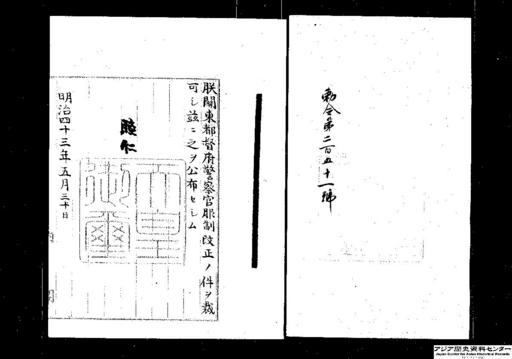 勅令第二百五十一號
朕關東都督府警察官服制改正ノ件ヲ裁
可シ茲ニ之ヲ公布セシム
睦仁
天皇
御璽
明治四十三年五月三十日
アジア歴史資料センター
Japan Center for Asian Historical Records